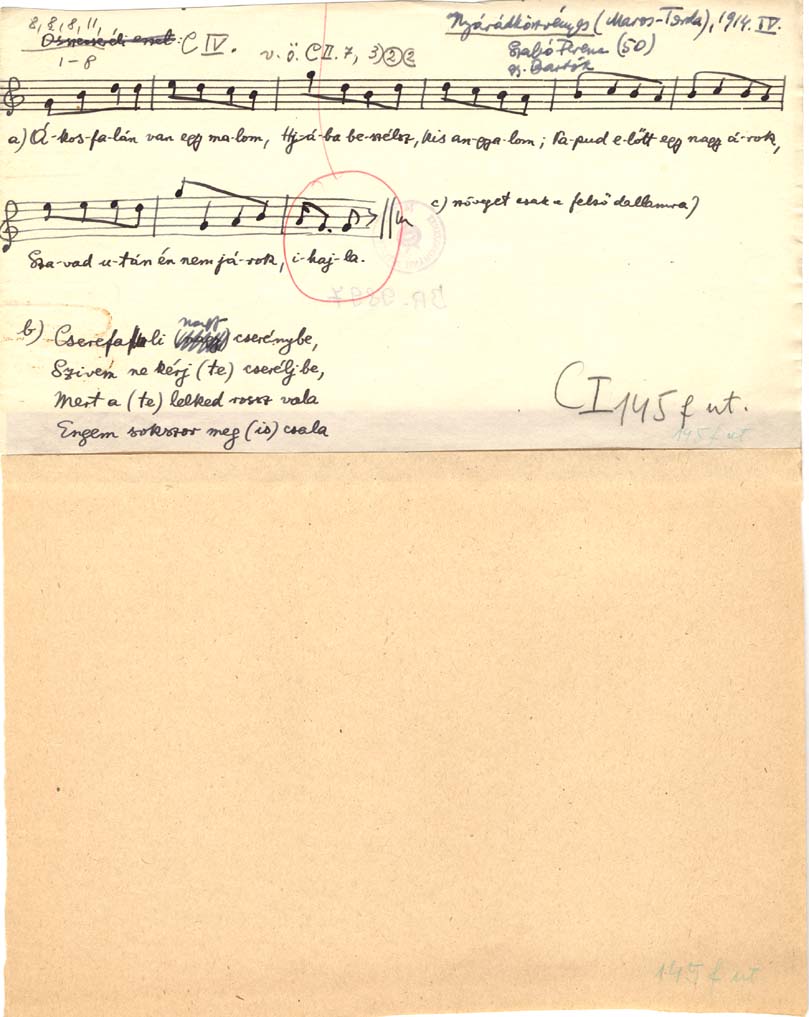 8, 8, 8, 11,
C IV.
1–8
v. ö. C II. 7, 3) 2 2
Nyárádköszvényes (Maros-Torda), 1914. IV.
Szabó Ferenc (50)
gy. Bartók
a) Á-kos-fa-lán van egy ma-lom, Hj-á-ba be-szélsz, kis an-gya-lom; Ka-pud e-lőtt egy nagy á-rok,
Sza-vad u-tán én nem já-rok, i-haj-la.
c) növget csak a felső dallamra)
BR. 9897
b) Cserefa li nagy cserénybe,
Szivem ne kérj (te) cserélj be,
Mert a (te) lelked rossz vala
Engem sokszor meg (is) csala
C I 145 f ut.
145 f ut
145 f ut